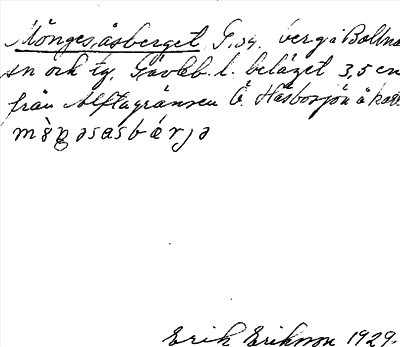 Mångesåsberget, G. sg. berg i Bollnä
sn och tg, Gävleb. l. beläget 3,5 cm
från Alftagränsen Ö. Häsbosjön å kart
Erik Erikson 1929.